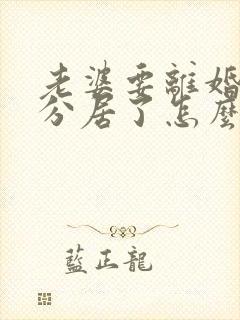 老婆要離婚
分居了怎麼
藍正龍